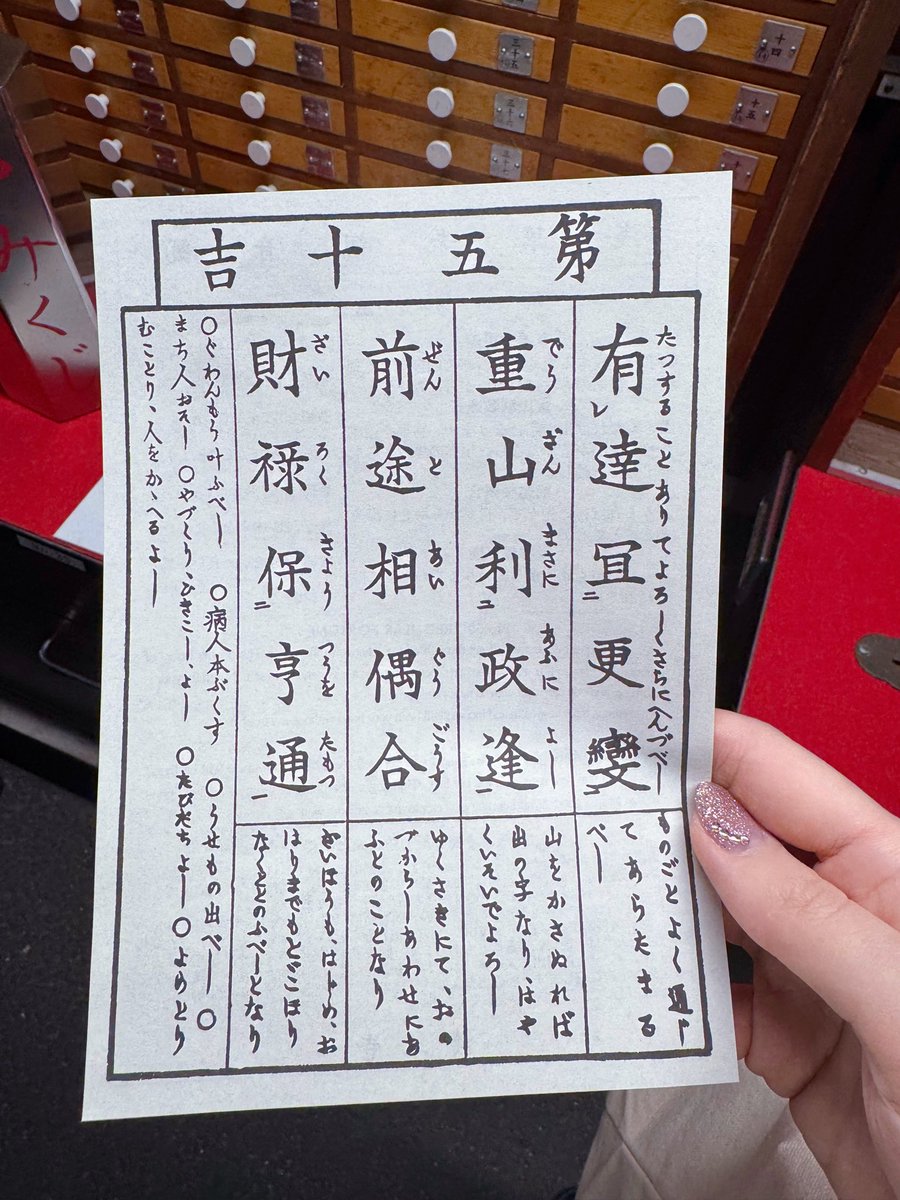 第五十吉
たつすることありてよろしくさらにへんづべし
有レ達冝二更變一
ものごとよく通じ
てあらたまる
べし
でうざんまさにあふによし
重山利二政逢一
山をかさぬれば
出の字なり、はや
くいそいでよろし
ぜんとあいぐうごうす
前途相偶合
ゆくさきにて、おの
づからしあわせにあ
ふとのことなり
ざいろくきようつうをたもつ
財禄保二亨通一
ざいほうも、はじめ、お
はりまでもとどこほり
なくととのふべしとなり
〇ぐわんもう叶ふべし 〇病人本ぶくす 〇うせもの出べし 〇
まち人おそし 〇やづくり、ひきこし、よし 〇たびだちよし 〇よめとり
むことり、人をかゝへるよし
みくじ
十四
十五
三十五
三十六
三十七